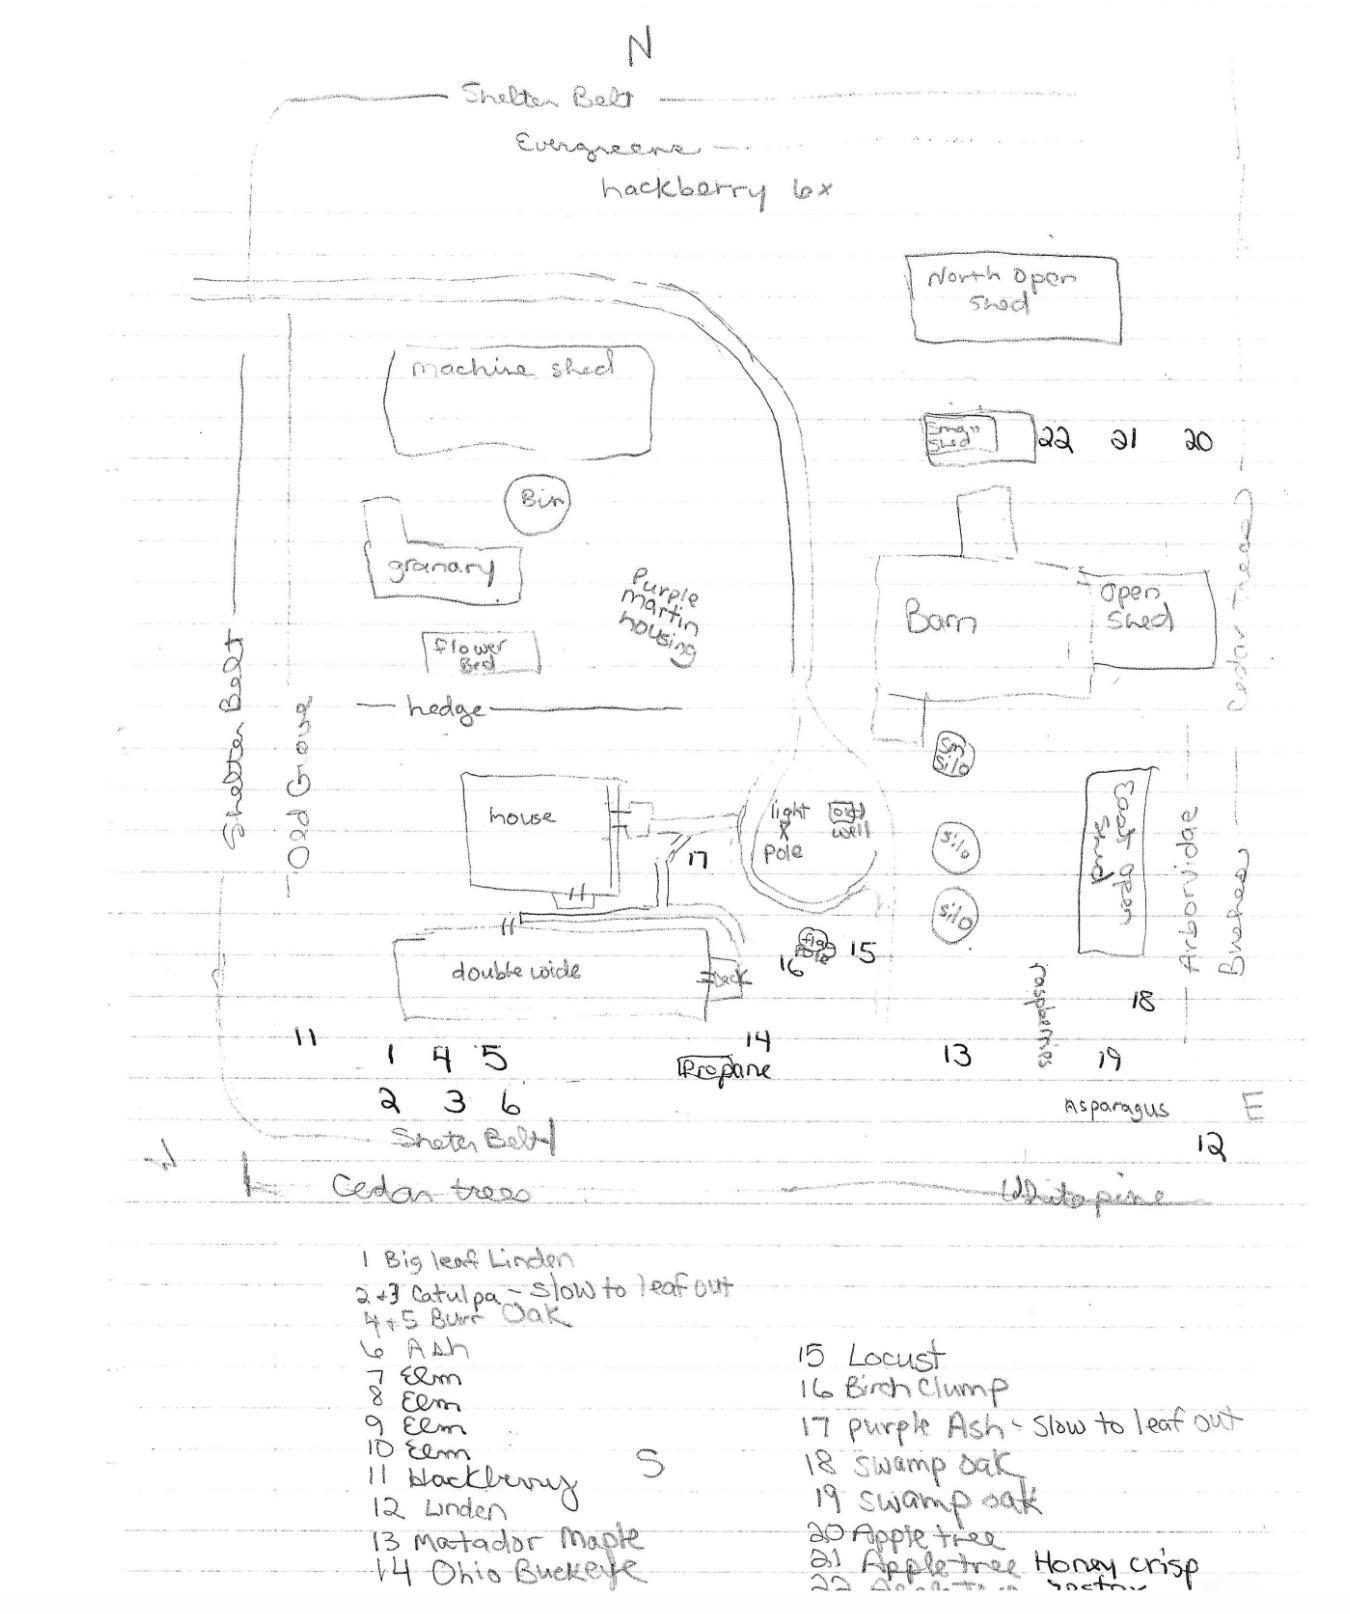 N
Shelter Belt
Evergreens
hackberry 6x
North Open
Shed
machine shed
Small
Shed
22 21 20
Bin
granary
Purple
martin
housing
Barn
Open
Shed
Cedar Trees
flower
Bed
hedge
Shelter Belt
Old Grove
Sm
Silo
house
light
X
pole
old
well
17
Silo
Silo
East open
Shed
Arborvidae
Bushes
flag
Pole
15
16
double wide
Deck
raspberries
18
11
14
1 4 5
Propane
13
19
2 3 6
Asparagus
E
Sheter Belt
12
W
Cedar trees
White pine
1 Big leaf Linden
2+3 Catulpa - Slow to leaf out
4+5 Burr Oak
6 Ash
7 Elm
8 Elm
9 Elm
10 Elm
11 Hackberry
12 Linden
13 Matador Maple
14 Ohio Buckeye
S
15 Locust
16 Birch Clump
17 purple Ash - Slow to leaf out
18 swamp oak
19 swamp oak
20 Apple tree
21 Apple tree Honey crisp
22